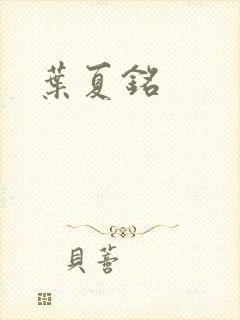 葉夏銘
貝